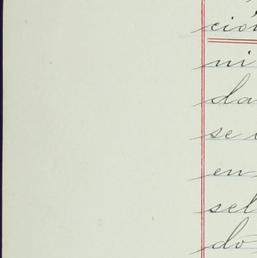 ción
ni
da
se
en
sel
do